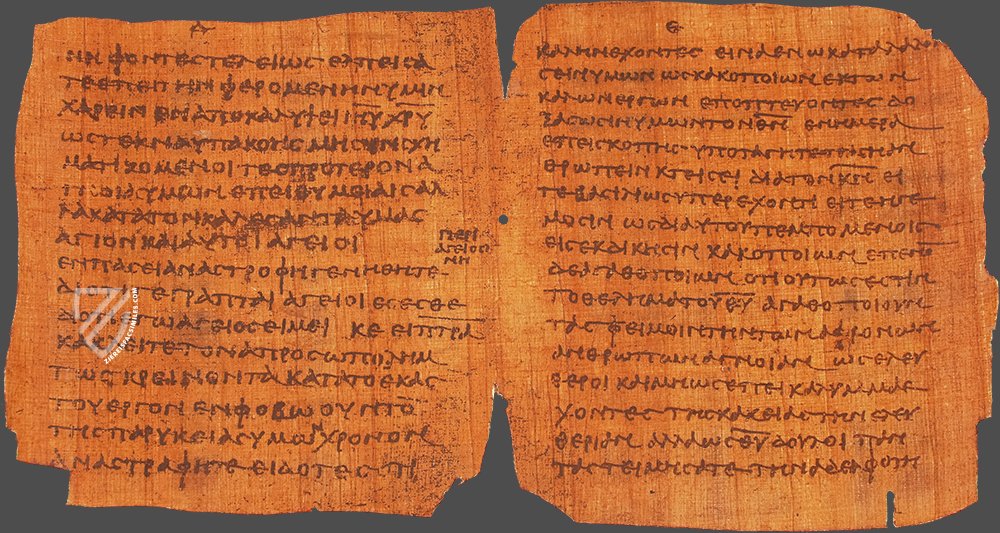 Δ
ΝΗΦΟΝΤΕΣ ΤΕΛΕΙΩΣ ΕΛΠΕΙΣΑ
ΤΕ ΕΠΕΙ ΤΗΝ ΦΕΡΟΜΕΝΗΝ ΥΜΙΝ
ΧΑΡΕΙΝ ΕΝ ΑΠΟΚΑΛΥΨΕΙ ΙΗΥ ΧΡΥ
ΩΣ ΤΕΚΝΑ ΥΠΑΚΟΗΣ ΜΗ ΣΥΝΣΧΗ
ΜΑΤΙΖΟΜΕΝΟΙ ΤΕΣ ΠΡΟΤΕΡΟΝ Α
ΥΜΩΝ ΕΠΕΙΘΥΜΕΙΑΙΣ ΑΛ
ΛΑ ΚΑΤΑ ΤΟΝ ΚΑΛΕΣΑΝΤΑ ΥΜΑΣ
ΑΓΙΟΝ ΚΑΙ ΑΥΤΟΙ ΑΓΕΙΟΙ
ΕΝ ΠΑΣΕΙ ΑΝΑΣΤΡΟΦΗ ΓΕΝΗΘΗΤΕ
ΓΕΓΡΑΠΤΑΙ ΑΓΕΙΟΙ ΕΣΕΣΘΕ
ΑΓΕΙΟΣ ΕΙΜΕΙ ΚΕ ΕΙ ΠΤΡΑ
ΚΑΛΕΙΤΕ ΤΟΝ ΑΠΡΟΣΩΠΟΛΗΜ
ΤΩΣ ΚΡΕΙΝΟΝΤΑ ΚΑΤΑ ΤΟ ΕΚΑΣ
ΤΟΥ ΕΡΓΟΝ ΕΝ ΦΟΒΩ ΟΥΝ ΤΟ
ΤΗΣ ΠΑΡΥΚΕΙΑΣ ΥΜΩΝ ΧΡΟΝΟΝ
ΑΝΑΣΤΡΑΦΗΤΕ ΕΙΔΟΤΕΣ
ΠΕΡΙ
ΑΓΕΙΟΣΥ
ΝΗ
Ε
ΚΑΛΗΝ ΕΧΟΝΤΕΣ ΕΙΝΑ ΕΝ Ω ΚΑΤΑΛΑΛΟΥ
ΣΕΙΝ ΥΜΩΝ ΩΣ ΚΑΚΟΠΟΙΩΝ ΕΚ ΤΩΝ
ΚΑΛΩΝ ΕΡΓΩΝ ΕΠΟΠΤΕΥΟΝΤΕΣ ΔΟ
ΞΑΣΩΣΙΝ ΥΜΩΝ ΤΟΝ ΘΝ ΕΝ ΗΜΕΡΑ
ΕΠΕΙΣΚΟΠΗΣ ΥΠΟΤΑΓΗΤΕ ΠΑΣΗ ΑΝ
ΘΡΩΠΕΙΝΗ ΚΤΕΙΣΕΙ ΔΙΑ ΤΟΝ ΚΝ ΕΙ
ΤΕ ΒΑΣΙΛΕΙ ΩΣ ΥΠΕΡΕΧΟΝΤΙ ΕΙΤΕ ΗΓΕ
ΜΟΣΙΝ ΩΣ ΔΙ ΑΥΤΟΥ ΠΕΜΠΟΜΕΝΟΙΣ
ΕΙΣ ΕΚΔΙΚΗΣΙΝ ΚΑΚΟΠΟΙΩΝ ΕΠΕΝΟ
ΔΕ ΑΓΑΘΟΠΟΙΩΝ ΟΤΙ ΟΥΤΩΣ ΕΣΤΙΝ
ΤΟ ΘΕΛΗΜΑ ΤΟΥ ΘΥ ΑΓΑΘΟΠΟΙΟΥΝ
ΤΑΣ ΦΕΙΜΟΙΝ ΤΗΝ ΤΩΝ ΑΦΡΟΝΩΝ
ΑΝΘΡΩΠΩΝ ΑΓΝΟΙΑΝ ΩΣ ΕΛΕΥ
ΘΕΡΟΙ ΚΑΙ ΜΗ ΩΣ ΕΠΕΙΚΑΛΥΜΜΑ Ε
ΧΟΝΤΕΣ ΤΗΣ ΚΑΚΕΙΑΣ ΤΗΝ ΕΛΕΥ
ΘΕΡΙΑΝ ΑΛΛΑ ΩΣ ΘΥ ΔΟΥΛΟΙ ΠΑΝ
ΤΑΣ ΤΕΙΜΗΣΑΤΕ ΤΗΝ ΑΔΕΛΦΟΤΗ
ZIEREISFACSIMILES.COM